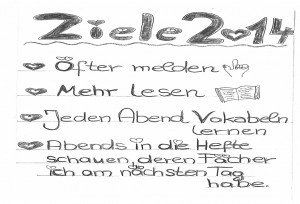 Ziele 2014
Öfter melden
Mehr Lesen
Jeden Abend Vokabeln
lernen
Abends in die Hefte
schauen, deren Fächer
ich am nächsten Tag
habe.